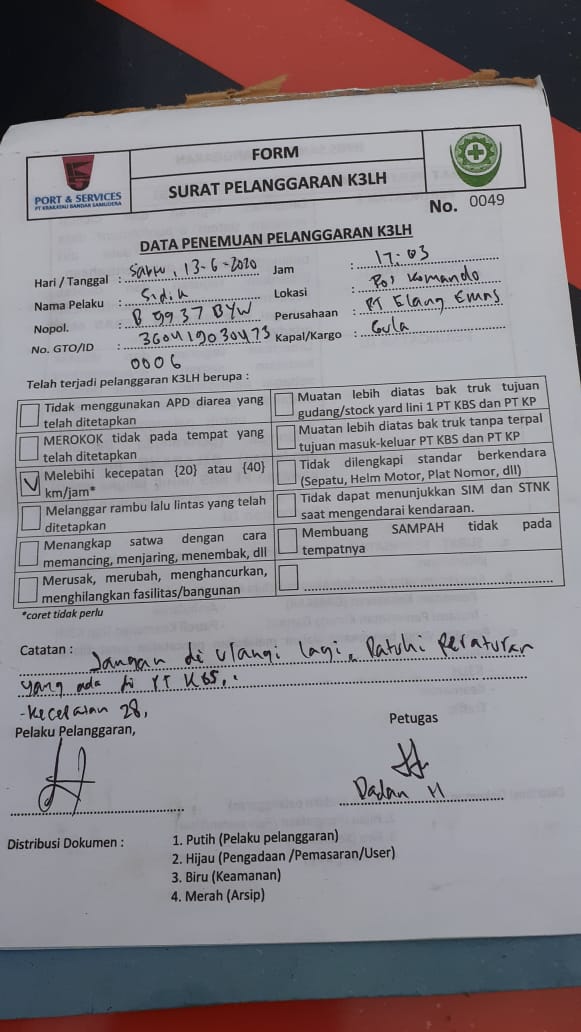 PORT & SERVICES
PT KRAKATAU BANDAR SAMUDERA
FORM
SURAT PELANGGARAN K3LH
No. 0049
DATA PENEMUAN PELANGGARAN K3LH
Hari / Tanggal : Sabtu, 13-6-2020 Jam : 17.03
Nama Pelaku : Sidik Lokasi : Pos Komando
Nopol. : B 9937 BYW Perusahaan : PT Elang Emas
No. GTO/ID : 360419030473 Kapal/Kargo : Gula
0006
Telah terjadi pelanggaran K3LH berupa :
Tidak menggunakan APD diarea yang telah ditetapkan
Muatan lebih diatas bak truk tujuan gudang/stock yard lini 1 PT KBS dan PT KP
MEROKOK tidak pada tempat yang telah ditetapkan
Muatan lebih diatas bak truk tanpa terpal tujuan masuk-keluar PT KBS dan PT KP
V Melebihi kecepatan {20} atau {40} km/jam*
Tidak dilengkapi standar berkendara (Sepatu, Helm Motor, Plat Nomor, dll)
Melanggar rambu lalu lintas yang telah ditetapkan
Tidak dapat menunjukkan SIM dan STNK saat mengendarai kendaraan.
Menangkap satwa dengan cara memancing, menjaring, menembak, dll
Membuang SAMPAH tidak pada tempatnya
Merusak, merubah, menghancurkan, menghilangkan fasilitas/bangunan
*coret tidak perlu
Catatan : Jangan di ulangi lagi, Patuhi Peraturan
yang ada di PT KBS,.
-Kecepatan 28,
Pelaku Pelanggaran, Petugas
Dadan H
Distribusi Dokumen : 1. Putih (Pelaku pelanggaran)
2. Hijau (Pengadaan /Pemasaran/User)
3. Biru (Keamanan)
4. Merah (Arsip)